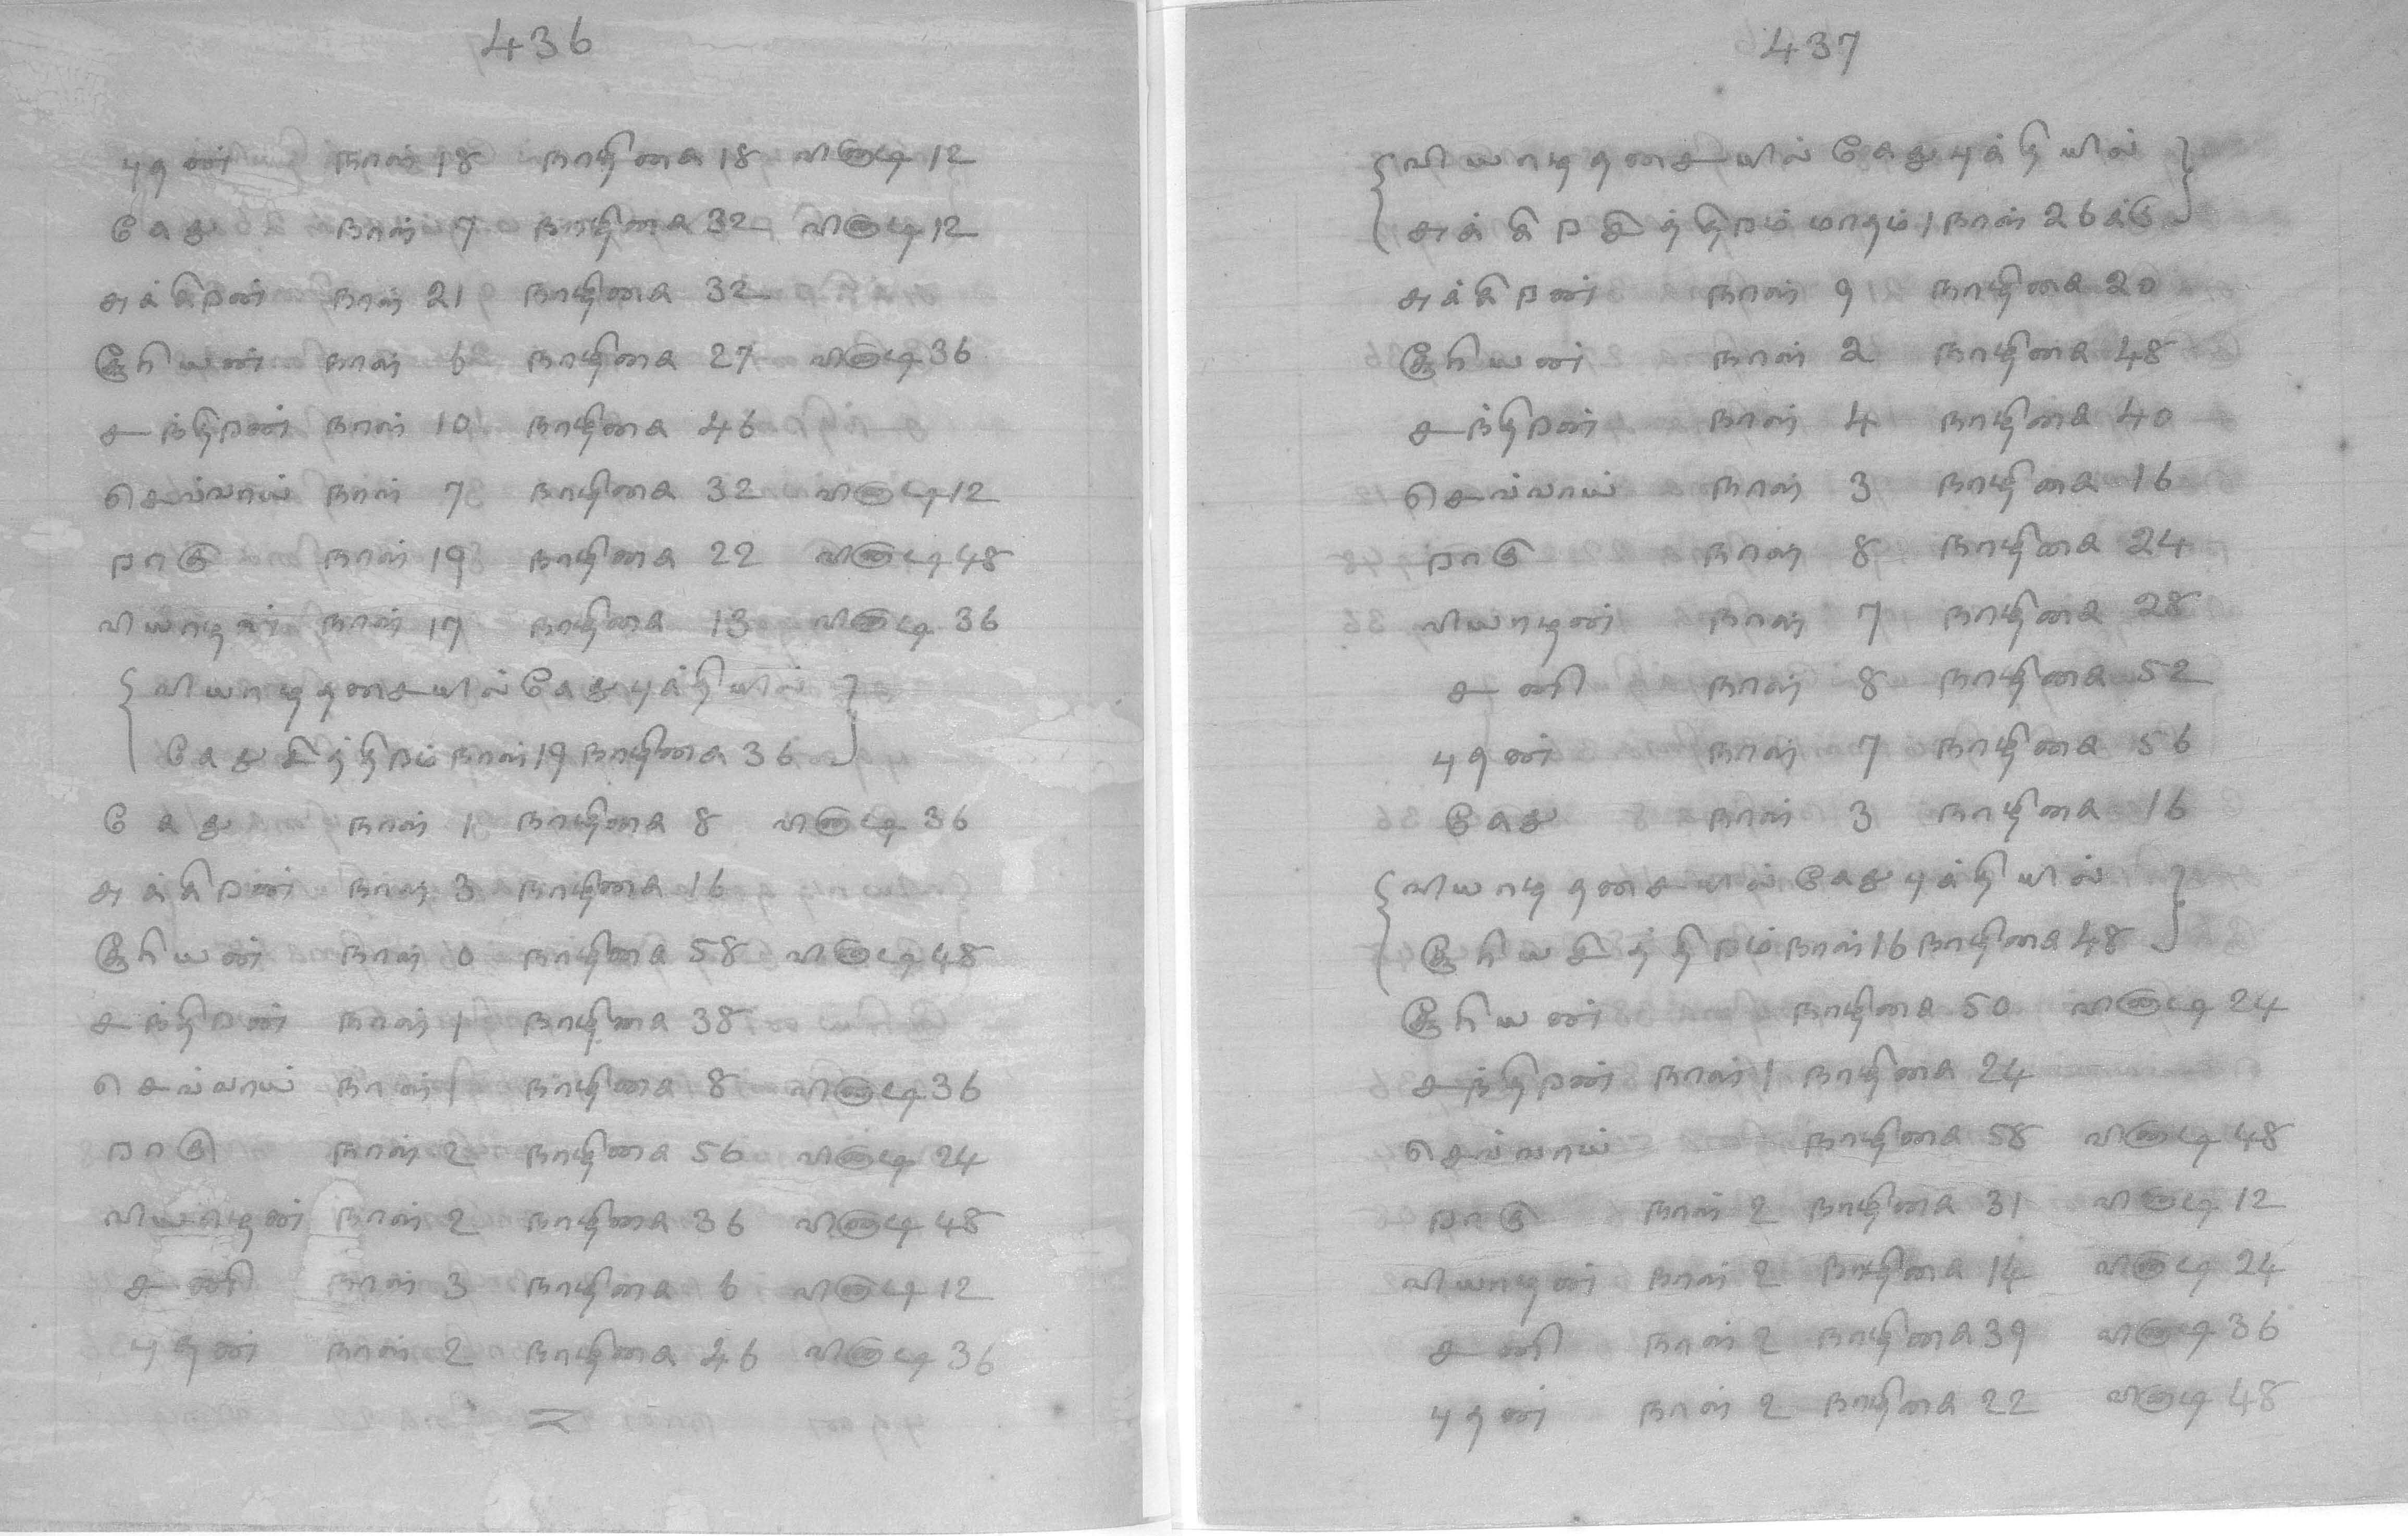 436
புதன் நாள் 18 நாழிகை 18 வினாடி 12
கேது நாள் 7 நாழிகை 32 வினாடி 12
சுக்கிறன் நாள் 21 நாழிகை 32
சூரியன் நாள் 6 நாழிகை 27 வினாடி 36
சந்திறன் நாள் 10 நாழிகை 46
செவ்வாய் நாள் 7 நாழிகை 32 வினாடி 12
றாகு நாள் 19 நாழிகை 22 வினாடி 48
வியாழன் நாள் 17 நாழிகை 13 வினாடி 36
{ வியாழ தசையில் கேது புக்தியில் }
{ கேது சித்திறம் நாள் 19 நாழிகை 36 }
கேது நாள் 1 நாழிகை 8 வினாடி 36
சுக்கிறன் நாள் 3 நாழிகை 16
சூரியன் நாள் 0 நாழிகை 58 வினாடி 48
சந்திறன் நாள் 1 நாழிகை 38
செவ்வாய் நாள் 1 நாழிகை 8 வினாடி 36
றாகு நாள் 2 நாழிகை 56 வினாடி 24
வியாழன் நாள் 2 நாழிகை 36 வினாடி 48
சனி நாள் 3 நாழிகை 6 வினாடி 12
புதன் நாள் 2 நாழிகை 46 வினாடி 36
437
{ வியாழ தசையில் கேது புக்தியில் }
{ சுக்கிற சித்திறம் மாதம் 1 நாள் 26க்கு }
சுக்கிறன் நாள் 9 நாழிகை 20
சூரியன் நாள் 2 நாழிகை 48
சந்திறன் நாள் 4 நாழிகை 40
செவ்வாய் நாள் 3 நாழிகை 16
றாகு நாள் 8 நாழிகை 24
வியாழன் நாள் 7 நாழிகை 28
சனி நாள் 8 நாழிகை 52
புதன் நாள் 7 நாழிகை 56
கேது நாள் 3 நாழிகை 16
{ வியாழ தசையில் கேது புக்தியில் }
{ சூரிய சித்திறம் நாள் 16 நாழிகை 48 }
சூரியன் நாழிகை 50 வினாடி 24
சந்திறன் நாள் 1 நாழிகை 24
செவ்வாய் நாழிகை 58 வினாடி 48
றாகு நாள் 2 நாழிகை 31 வினாடி 12
வியாழன் நாள் 2 நாழிகை 14 வினாடி 24
சனி நாள் 2 நாழிகை 39 வினாடி 36
புதன் நாள் 2 நாழிகை 22 வினாடி 48